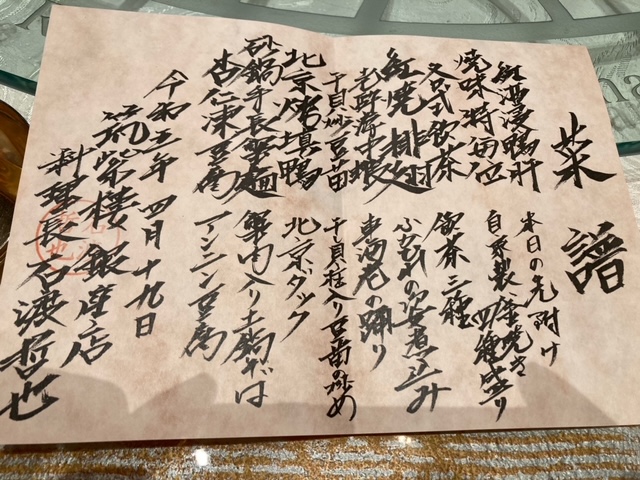 菜譜
紅酒浸鴨肝 本日の先附け
焼味特色位 自家製釜焼き四種盛り
各式飲茶 飲茶三種
紅焼排翅 ふかひれの姿煮込み
車海老の踊り
干貝 豆苗 干貝柱入り豆苗の炒め
北京烤填鴨 北京ダック
砂鍋手長蟹麺 蟹肉入り土鍋そば
杏仁凍豆腐 アンニン豆腐
令和五年 四月十九日
筑紫楼 銀座店
料理長 石渡哲也